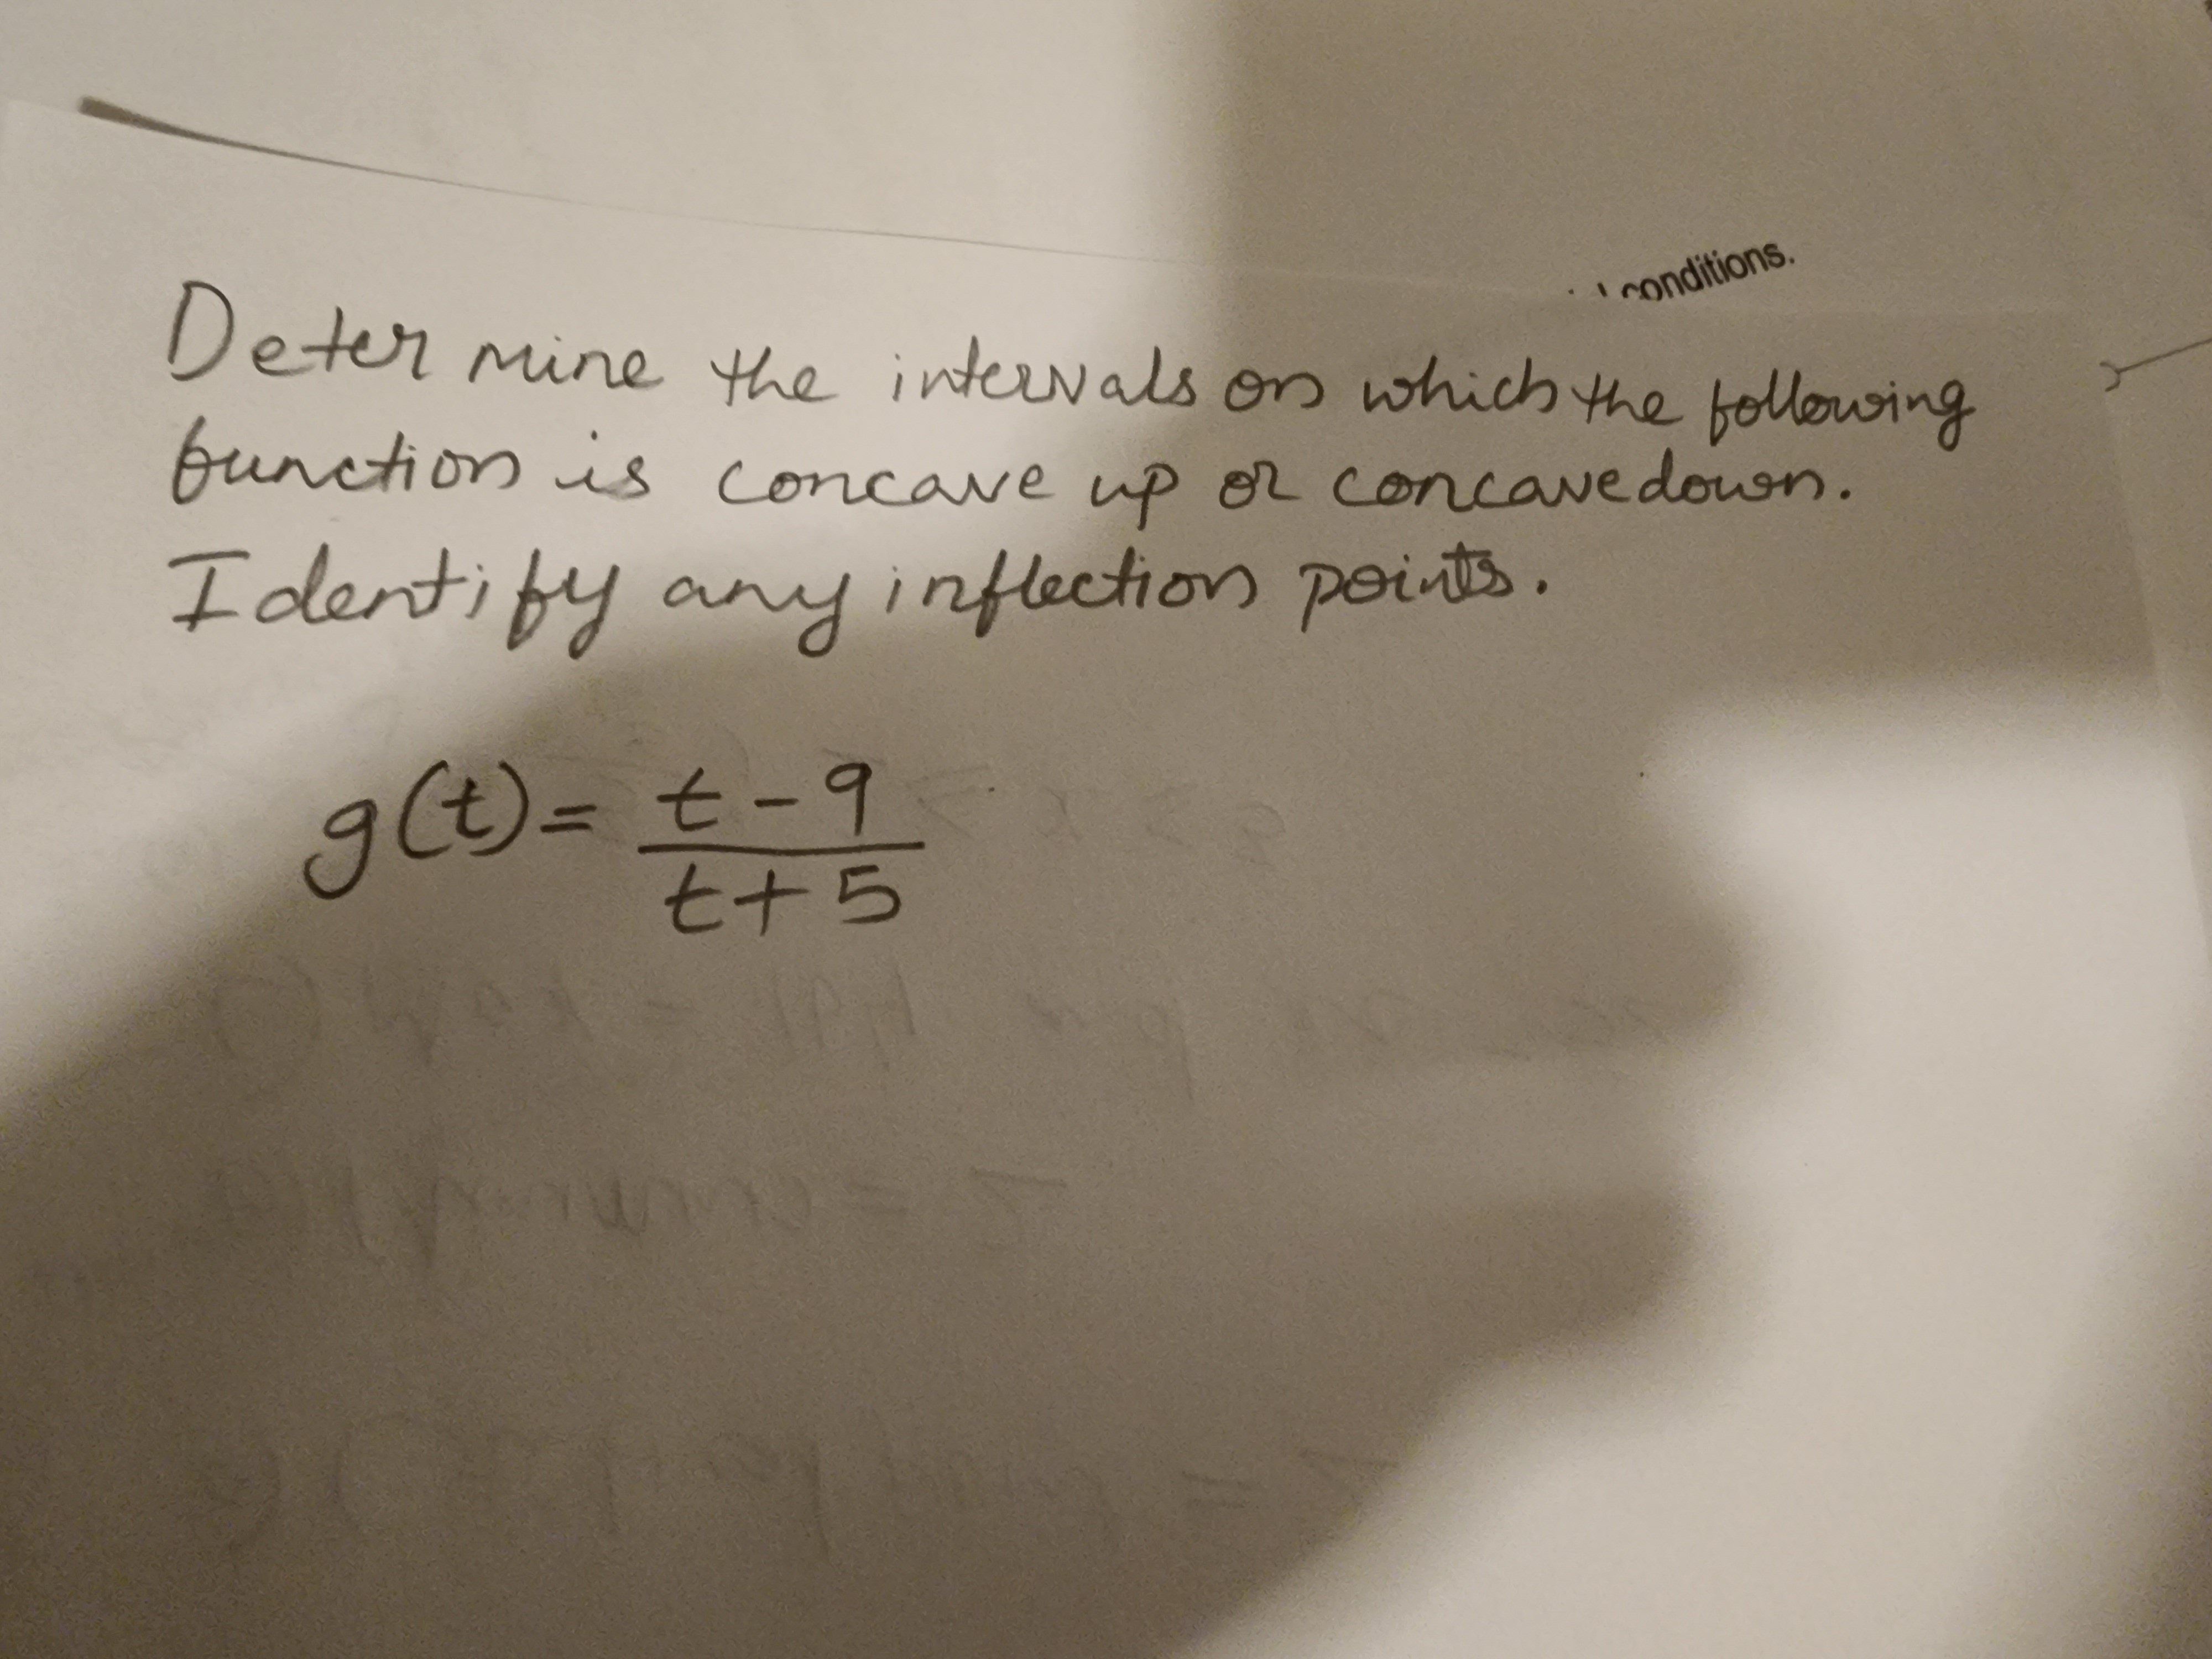 conditions.
Determine the intervals on which the following
function is concave up or concave down.
Identify any inflection points.
g(t) = \frac{t-9}{t+5}